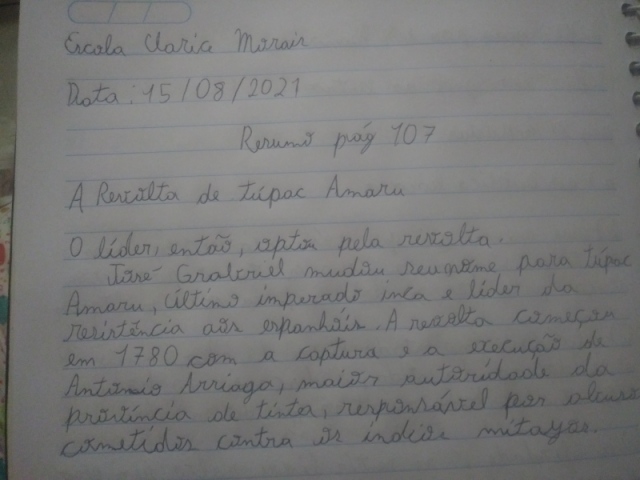 Escola Clarice Morais
Data: 15/08/2021
Resumo pág 107
A Revolta de túpac Amaru
O líder, então, optou pela revolta.
José Grabriel mudou seu nome para túpac
Amaru, último imperado inca e líder da
resistência aos espanhóis. A revolta começou
em 1780 com a captura e a execução de
Antonio Arriaga, maior autoridade da
província de tinta, responsável por abusos
cometidos contra os índios mitayos.